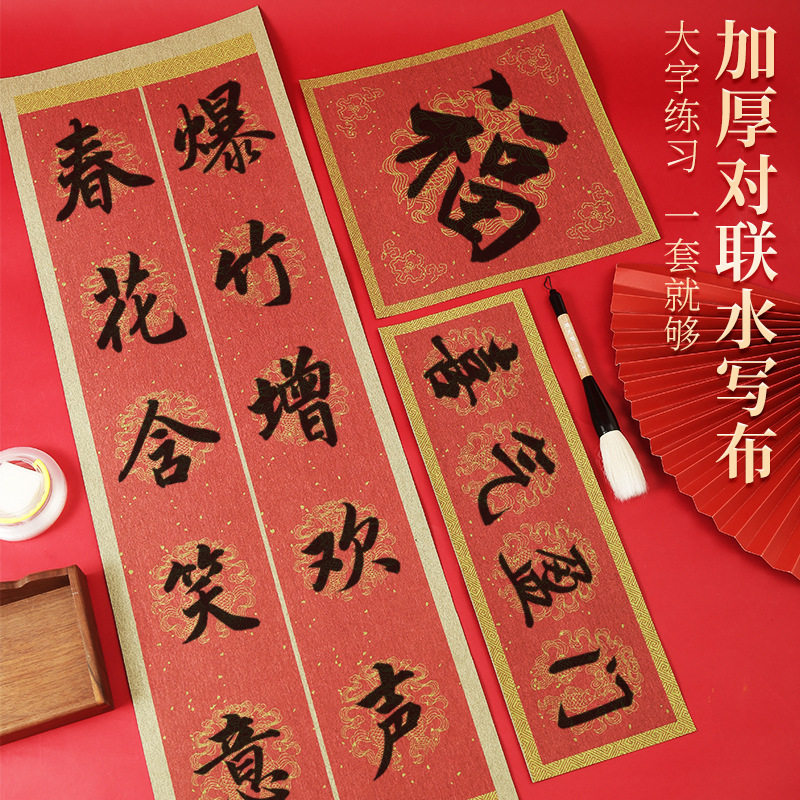 加厚对联水写布
大字练习 一套就够
福
爆竹增欢声
春花含笑意
喜气盈门